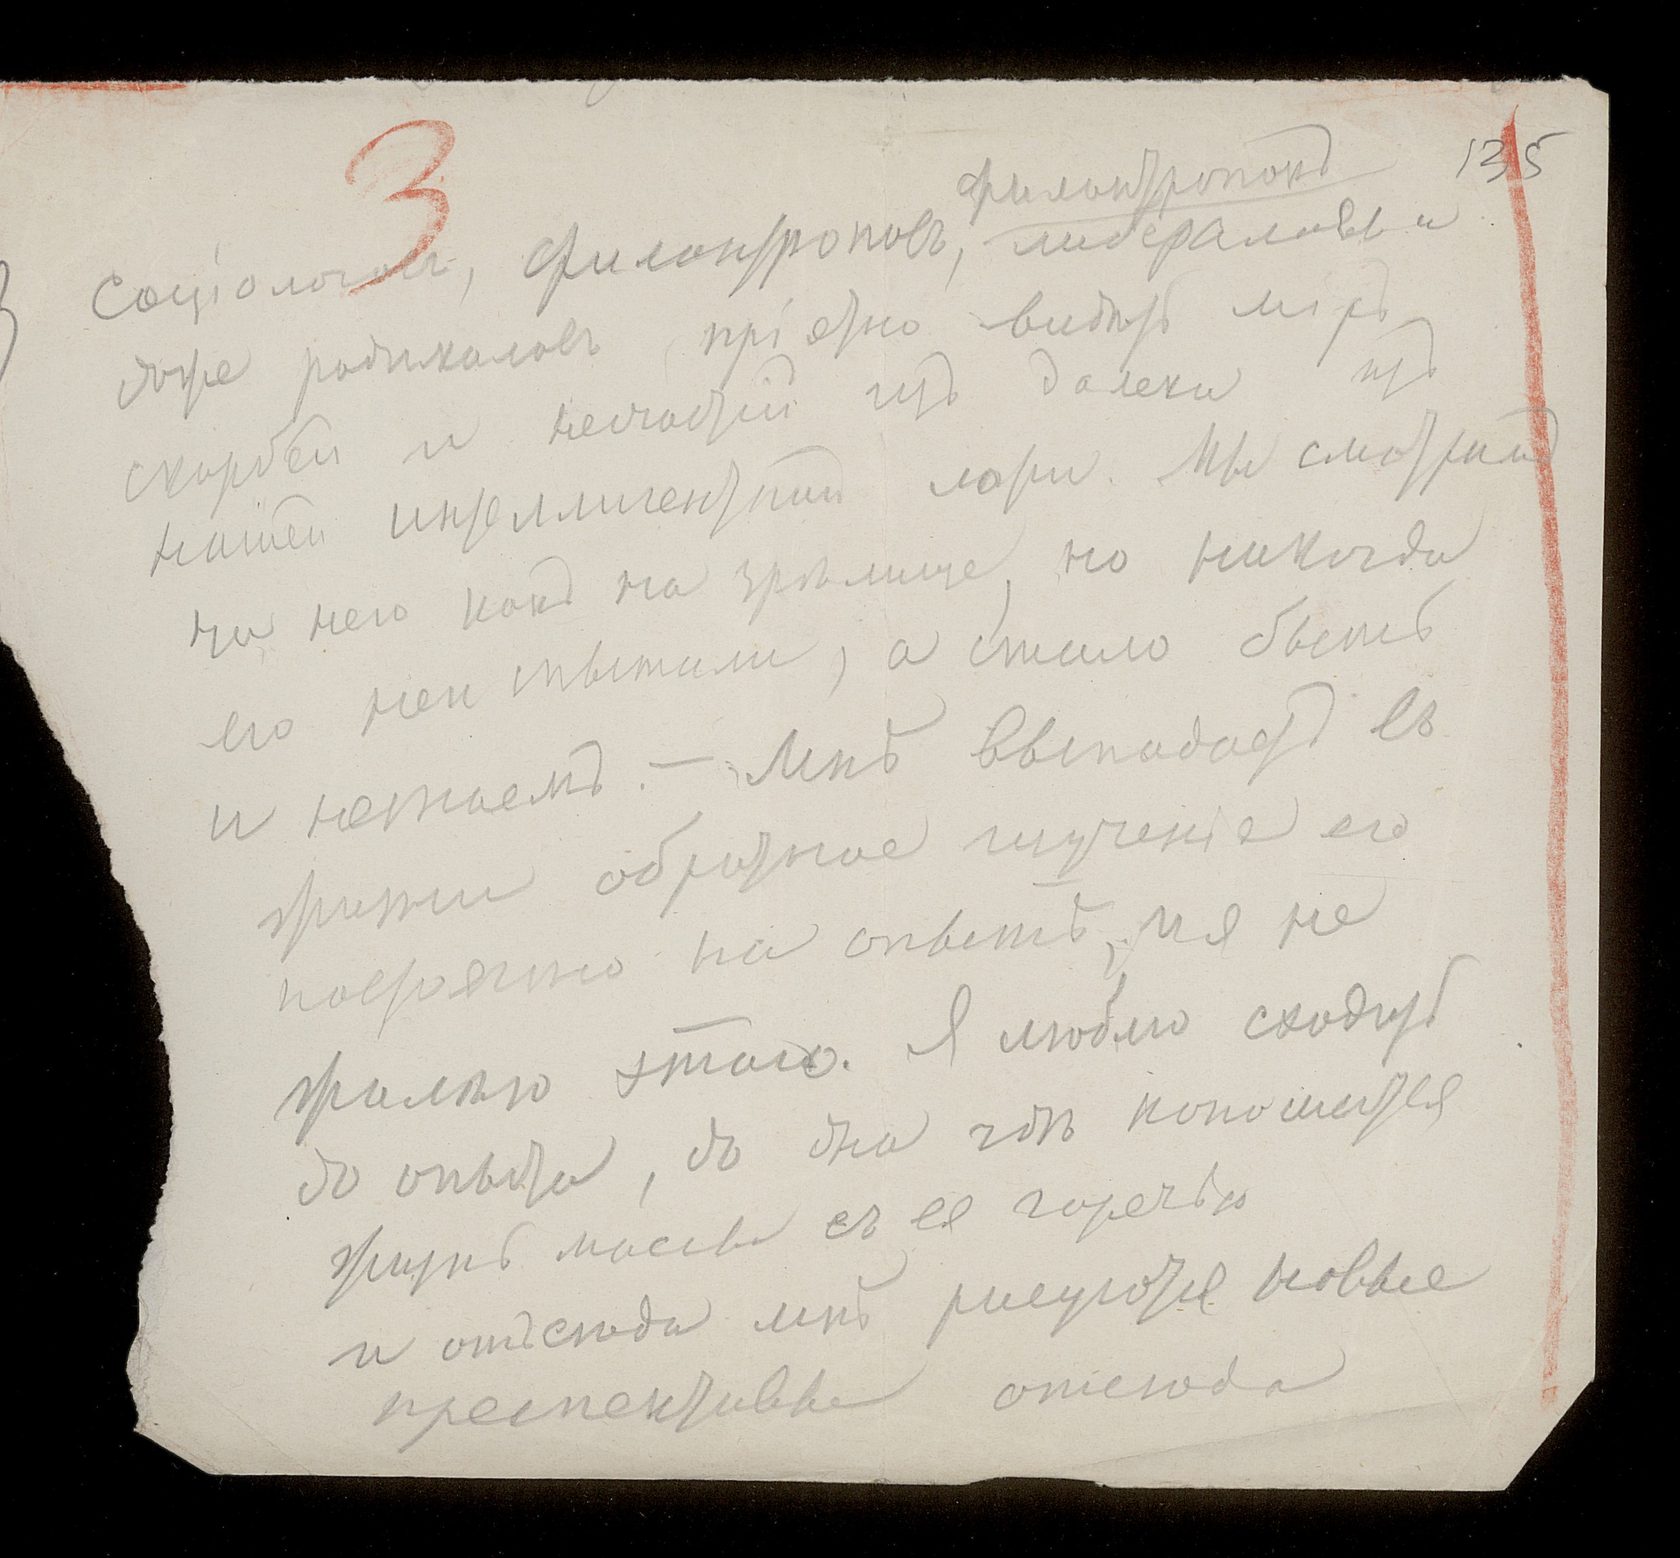 3
135
филантропокъ
соціологовъ, филантроповъ, либераловъ и
даже радикаловъ пріятно видеть міръ
скорбей и несчастій изъ далека изъ
нашей интеллигентной ложи. Мы смотримъ
на него какъ на зрѣлище, но никогда
его не испытали, а стало быть
и не знаемъ. — Мнѣ выпадаетъ въ
жизни обратное изученіе его
на опытѣ, и я не
жалѣю этого. Я люблю сходить
до опыта, до дна гдѣ копошится
жизнь массы съ ея горечью
и отъсюда мнѣ рисуются новые
преспективы отсюда